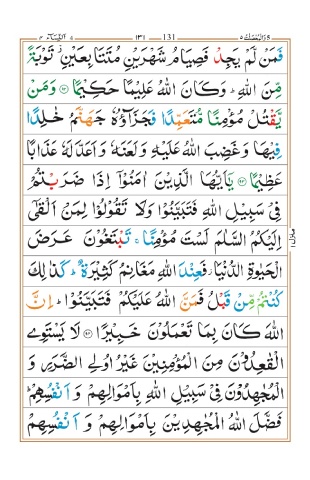 النسآء ٤ ١٣١ 131 والمحصنت ٥
فَمَنْ لَّمْ يَجِدْ فَصِيَامُ شَهْرَيْنِ مُتَتَابِعَيْنِ ۫ تَوْبَةً
مِّنَ اللّٰهِ ؕ وَكَانَ اللّٰهُ عَلِيْمًا حَكِيْمًا ﴿۹۲﴾ وَمَنْ
يَّقْتُلْ مُؤْمِنًا مُّتَعَمِّدًا فَجَزَآؤُهٗ جَهَنَّمُ خٰلِدًا
فِيْهَا وَغَضِبَ اللّٰهُ عَلَيْهِ وَلَعَنَهٗ وَاَعَدَّ لَهٗ عَذَابًا
عَظِيْمًا ﴿۹۳﴾ يٰۤاَيُّهَا الَّذِيْنَ اٰمَنُوْۤا اِذَا ضَرَبْتُمْ
فِيْ سَبِيْلِ اللّٰهِ فَتَبَيَّنُوْا وَلَا تَقُوْلُوْا لِمَنْ اَلْقٰۤى
اِلَيْكُمُ السَّلٰمَ لَسْتَ مُؤْمِنًا ۚ تَبْتَغُوْنَ عَرَضَ
الْحَيٰوةِ الدُّنْيَا ؗ فَعِنْدَ اللّٰهِ مَغَانِمُ كَثِيْرَةٌ ؕ كَذٰلِكَ
كُنْتُمْ مِّنْ قَبْلُ فَمَنَّ اللّٰهُ عَلَيْكُمْ فَتَبَيَّنُوْا ؕ اِنَّ
اللّٰهَ كَانَ بِمَا تَعْمَلُوْنَ خَبِيْرًا ﴿۹۴﴾ لَا يَسْتَوِي
الْقٰعِدُوْنَ مِنَ الْمُؤْمِنِيْنَ غَيْرُ اُولِي الضَّرَرِ وَ
الْمُجٰهِدُوْنَ فِيْ سَبِيْلِ اللّٰهِ بِاَمْوَالِهِمْ وَ اَنْفُسِهِمْ ؕ
فَضَّلَ اللّٰهُ الْمُجٰهِدِيْنَ بِاَمْوَالِهِمْ وَ اَنْفُسِهِمْ
منزل ۱